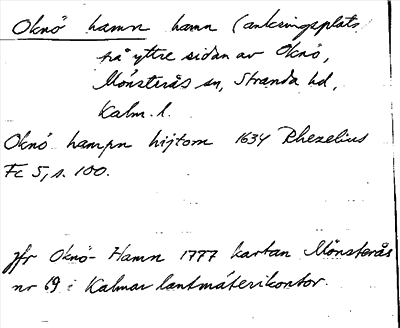 Oknö hamn hamn (ankringsplats
på yttre sidan av Oknö,
Mönsterås sn, Stranda hd,
Kalm. l.
Oknö hampn hijtom 1634 Rhezelius
Fc 5, s. 100.
Jfr Oknö-Hamn 1777 kartan Mönsterås
nr 69 i Kalmar lantmäterikontor.